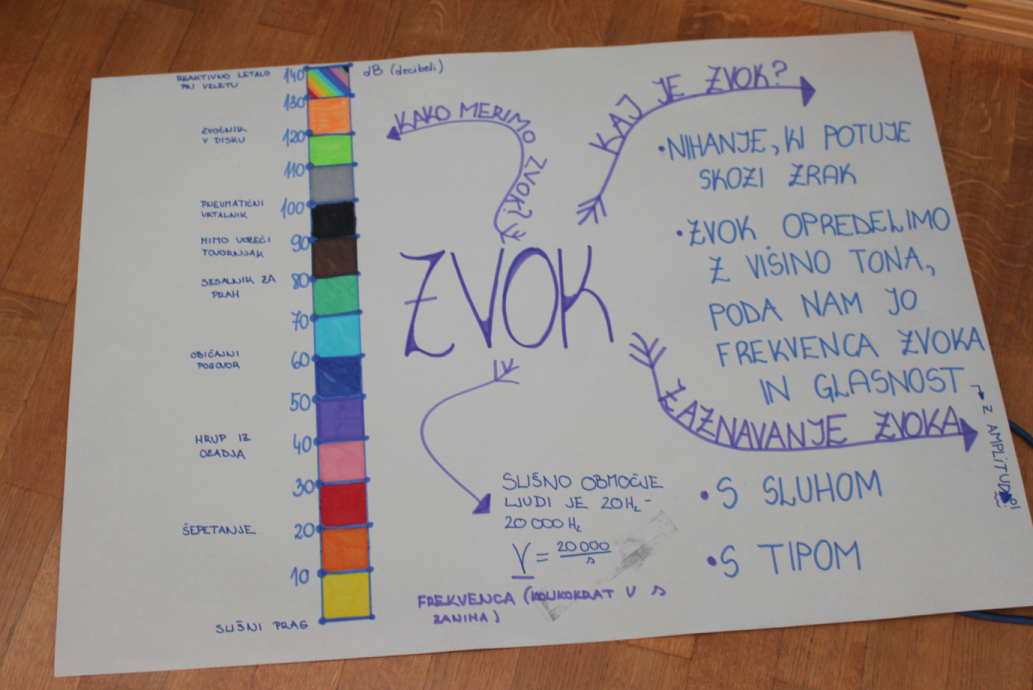 dB (decibeli)
REAKTIVNO LETALO
PRI VZLETU
ZVOČNIK
V DISKU
PNEVMATIČNI
VRTALNIK
MIMO VOZEČI
TOVORNJAK
SESALNIK ZA
PRAH
OBIČAJNI
POGOVOR
HRUP IZ
OZADJA
ŠEPETANJE
SLIŠNI PRAG
140
130
120
110
100
90
80
70
60
50
40
30
20
10
KAKO MERIMO ZVOK?
ZVOK
KAJ JE ZVOK?
•NIHANJE, KI POTUJE
SKOZI ZRAK
•ZVOK OPREDELIMO
Z VIŠINO TONA,
PODA NAM JO
FREKVENCA ZVOKA
IN GLASNOST
Z AMPLITUDO!
ZAZNAVANJE ZVOKA
•S SLUHOM
•S TIPOM
SLIŠNO OBMOČJE
LJUDI JE 20Hz-
20000Hz
V = 20000/s
FREKVENCA (KOLIKOKRAT V s
ZANIHA)